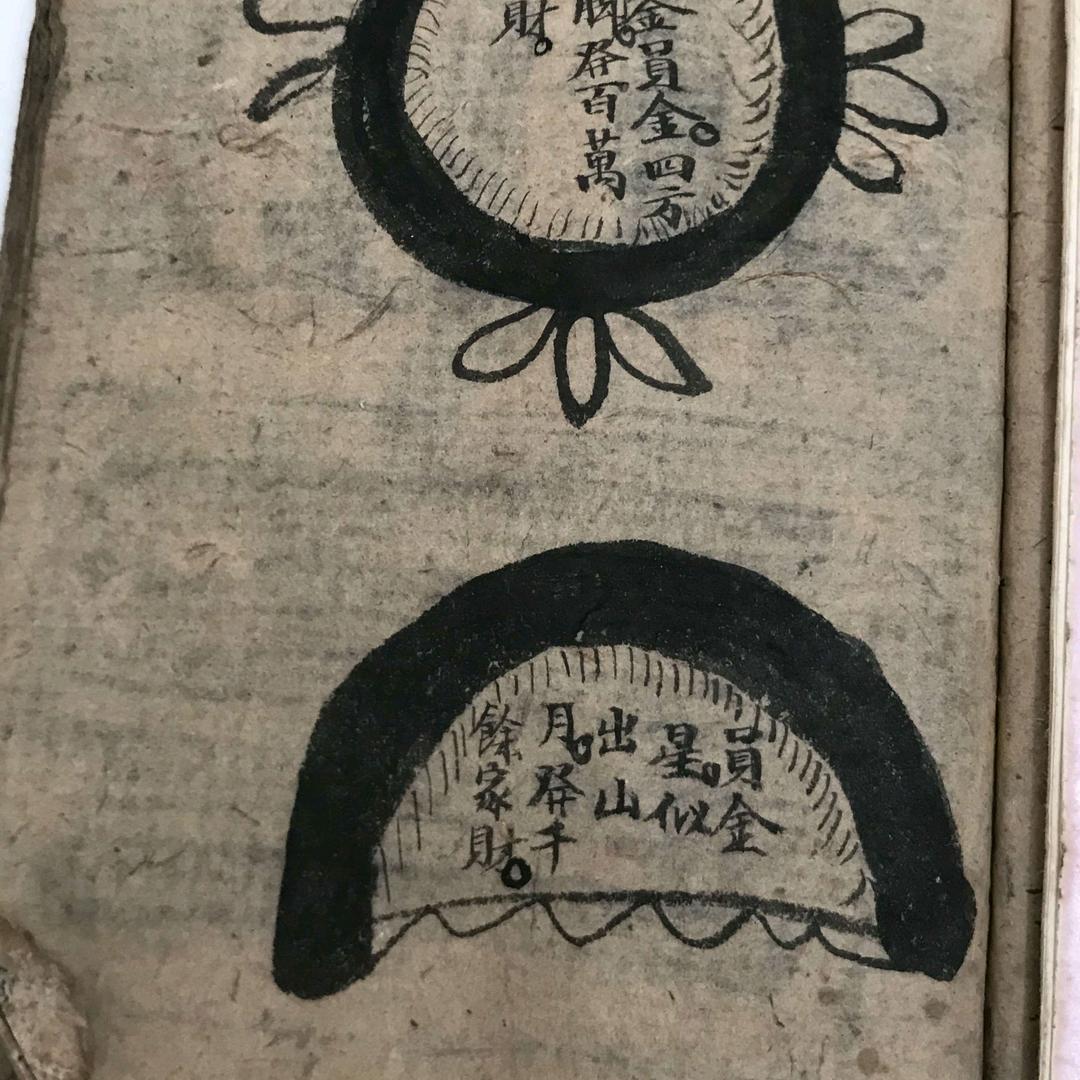 金員金。四方
發百萬
財。
員金
星。似
出山
月。發千
餘家財。